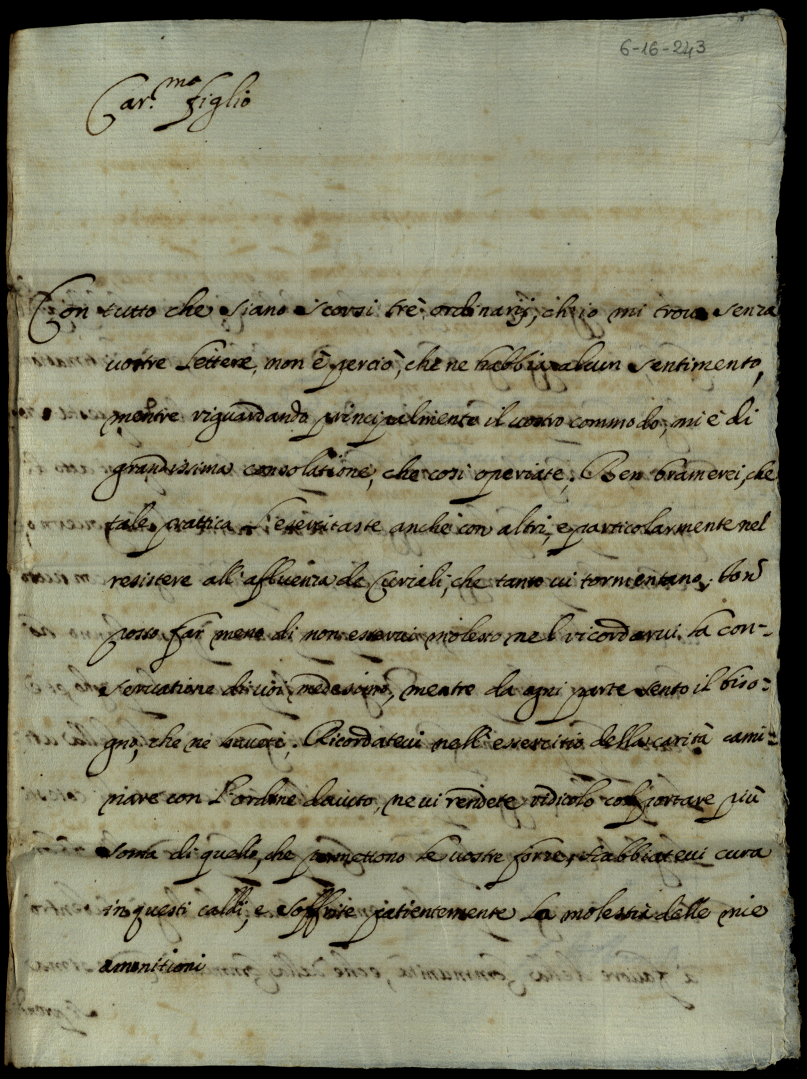 6-16-243
Car.mo figlio
Con tutto che siano scorsi trè ordinarij, ch'io mi trovo senza
vostre lettere, non è perciò, che ne habbia alcun sentimento,
mentre riguardando principalmente il vostro commodo, mi è di
grandissima consolatione, che così operiate. Ben bramerei, che
tale prattica l'esercitaste anche con altri, e particolarmente nel
resistere all'affluenza de Curiali, che tanto vi tormentano. Non
posso far meno di non esservi molesto nel ricordarvi la con-
servatione di voi medesimo, mentre da ogni parte sento il biso-
gno, che ne havete. Ricordatevi nell'esercitio della carità cami-
nare con l'ordine dovuto, ne vi rendete ridicolo col portare più
soma di quello, che permettono le vostre forze, habbiatevi cura
in questi caldi, e soffrite patientemente la molestia delle mie
amonitioni